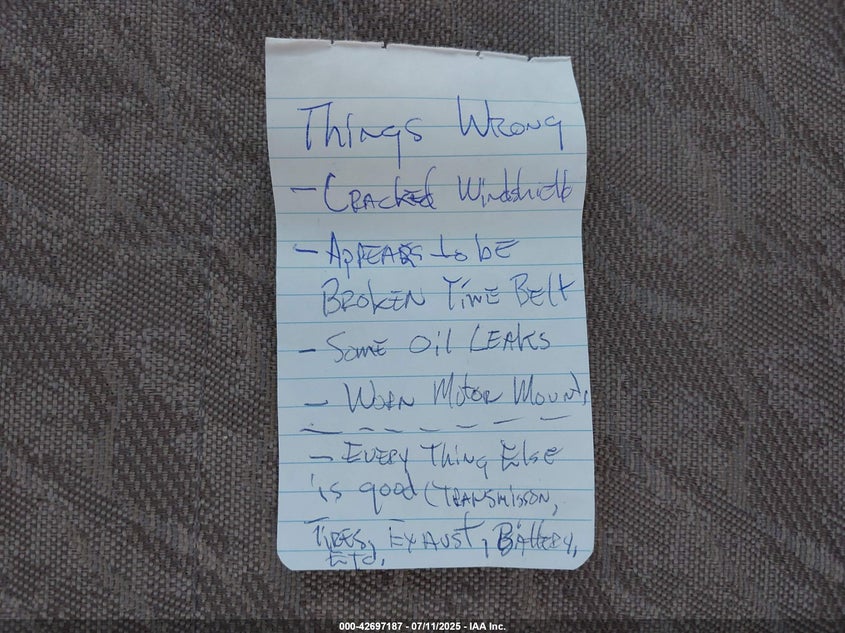 Things Wrong
- Cracked Windshield
- Appears to be
Broken Time Belt
- Some Oil Leaks
- Worn Motor Mounts
- Every Thing Else
is good (Transmisson,
Tires, Exhaust, Battery,
Etc.
000-42697187 - 07/11/2025 - IAA Inc.